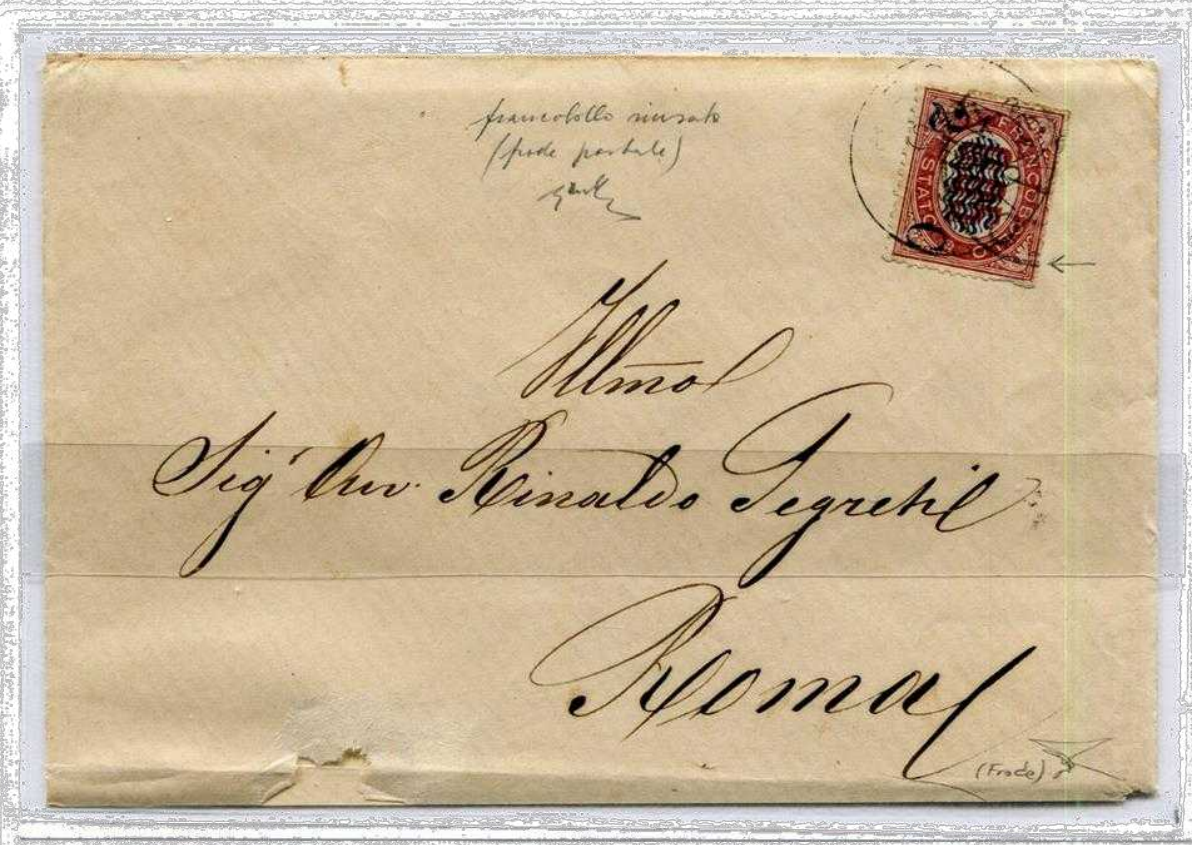 francobollo riusato
(frode postale)
FRANCOBO
STATO
Illmo
Sig.r Avv. Rinaldo Segreti
Roma
(Frode)